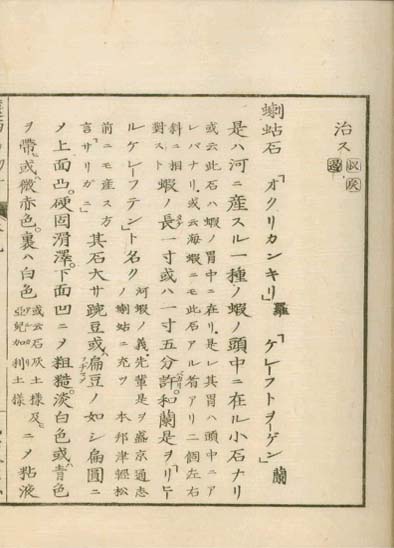 治ス
蝲蛄石「オクリカンキリ」羅「ケレーフトヲーゲン」蘭
是ハ河ニ産スル一種ノ蝦ノ頭中ニ在ル小石ナリ
或云此石ハ蝦ノ胃中ニ在リ是レ其胃ハ頭中ニア
レバナリ或云海蝦ニモ此石アル者アリ二個左右
斜ニ相
對スト
蝦ノ長一寸或ハ一寸五分許和蘭是ヲ「リヒー
ルケレーフテン」ト名ク
河蝦ノ義先輩是ヲ盛京通志
ノ蝲蛄ニ充ツ 本邦津軽松
前ニモ産ス方
言「サリガニ」
其石大サ豌豆或扁豆ノ如シ扁圓ニ
ノ上面凸硬固滑澤下面凹ニメ粗糙淡白色或青色
ヲ帶或微赤色裏ハ白色
或云石灰土樣及
亞兒加利土樣
ニメ粘液